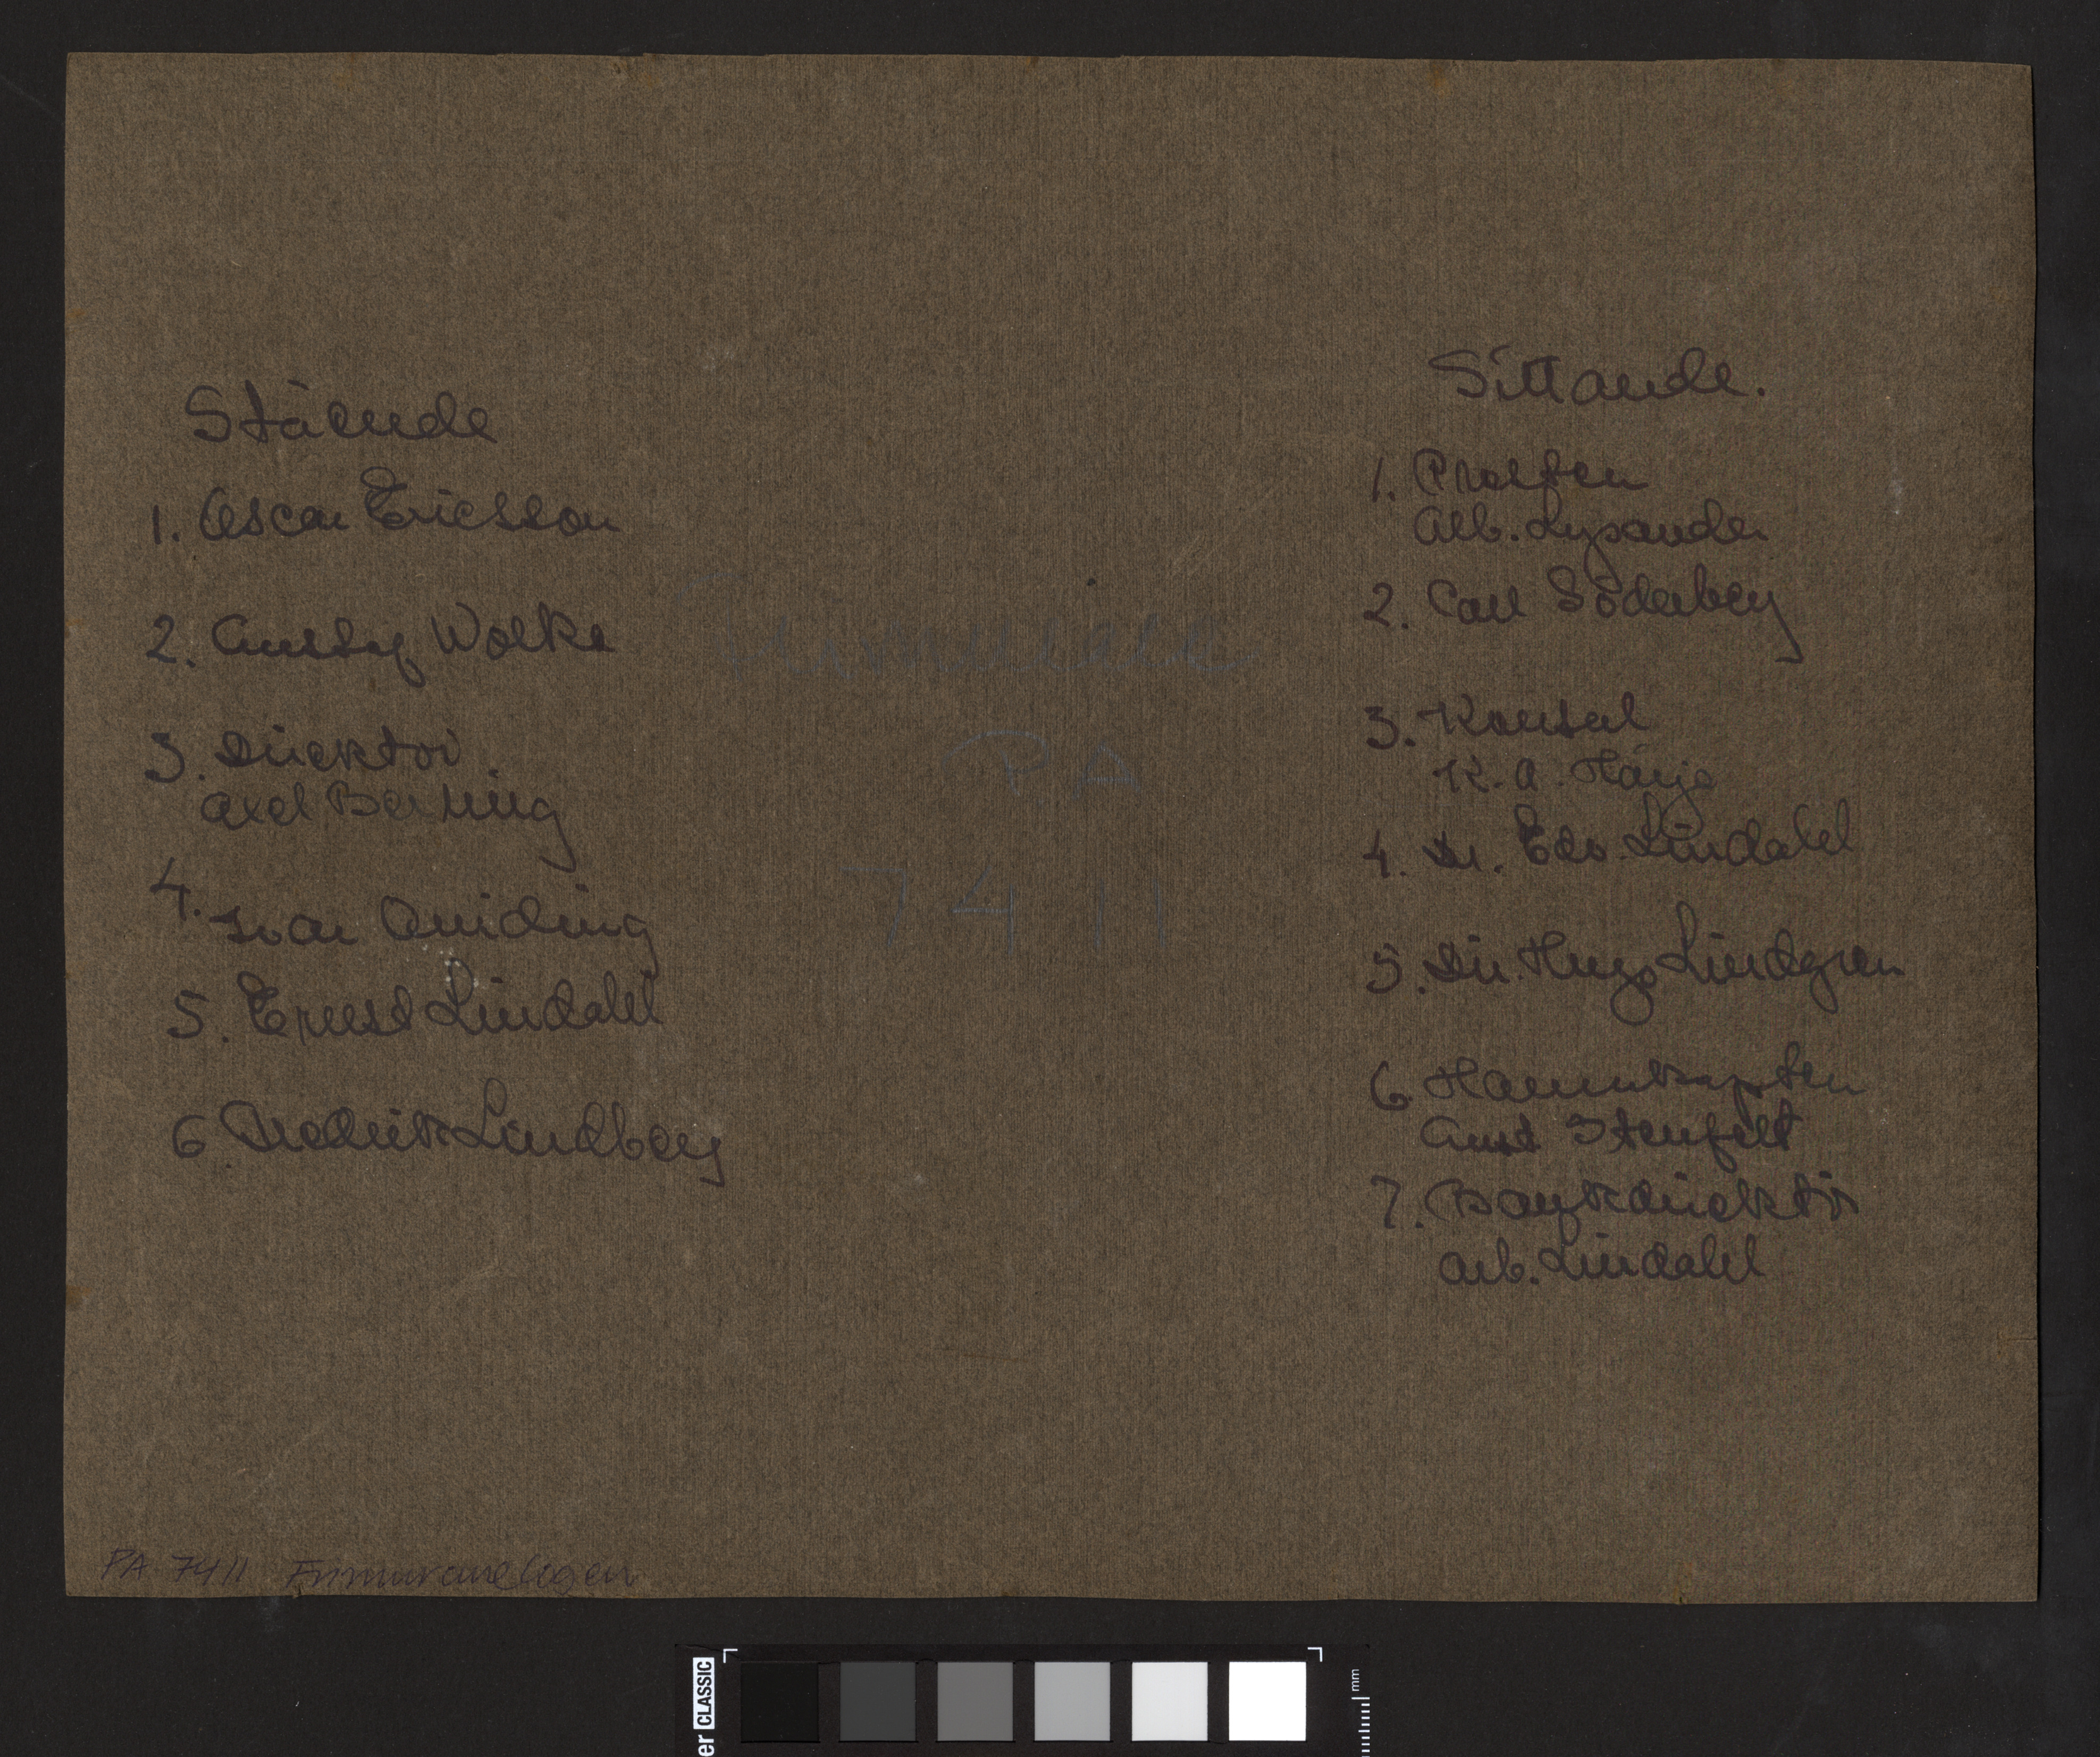 Stående
1. Oscar Ericsson
2. Gustaf Wolke
3. Direktör
Axel Berling
4. Ivar Quiding
5. Ernest Lindahl
6 Fredrik Lindberg
Frimurare
PA
7411
Sittande.
1. Prosten
Alb. Lysander
2. Carl Söderberg
3. Konsul
K. A. Härje
4. Dr. Edv. Lindahl
5. Dir. Hugo Lindgren
6. Hamnkapten
Aug Stenfelt
7. Bankdirektör
Alb. Lindahl
PA 7411 Frimurarelogen
er CLASSIC
mm